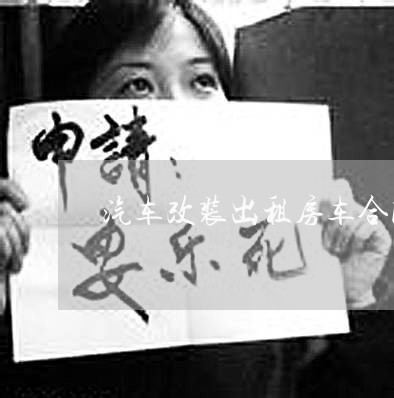 申請：
汽车改装出租房车合
安乐死